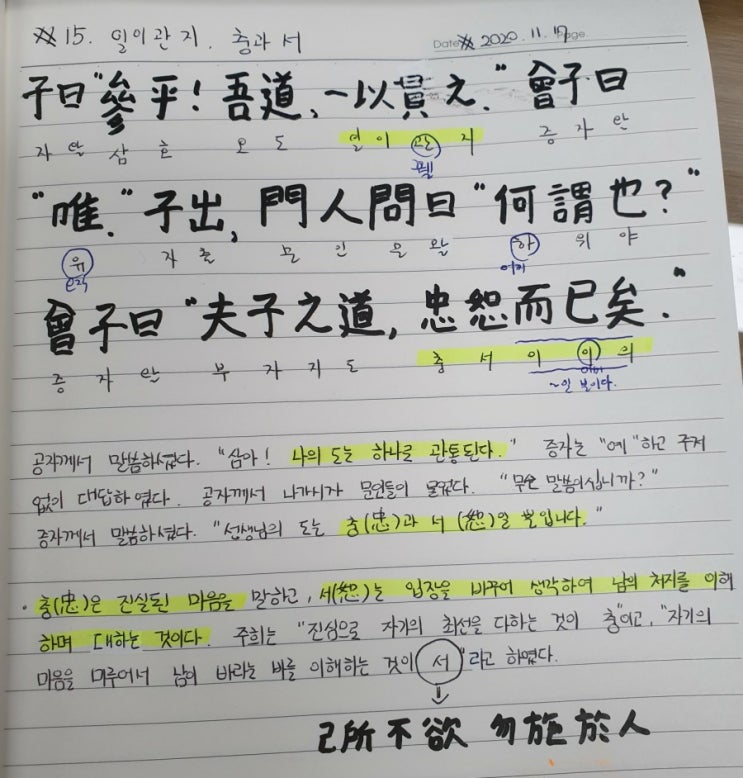 ※ 15. 일이관지. 충과 서
Date ※ 2020. 11. 17 Page.
子曰 "參乎! 吾道, 一以貫之." 曾子曰
자 왈 삼 호 오 도 일 이 관 지 증 자 왈
꿸
"唯." 子出, 門人問曰 "何謂也?"
유 자 출 문 인 문 왈 하 위 야
오직 어찌
曾子曰 "夫子之道, 忠恕而已矣."
증 자 왈 부 자 지 도 충 서 이 이 의
이미
~일 뿐이다.
공자께서 말씀하셨다. "삼아! 나의 도는 하나로 관통된다." 증자는 "예"하고 주저
없이 대답하였다. 공자께서 나가시자 문인들이 물었다. "무슨 말씀이십니까?"
증자께서 말씀하셨다. "선생님의 도는 충(忠)과 서(恕)일 뿐입니다."
· 충(忠)은 진실된 마음을 말하고, 서(恕)는 입장을 바꾸어 생각하여 남의 처지를 이해
하며 대하는 것이다. 주희는 "진심으로 자기의 최선을 다하는 것이 충"이고, "자기의
마음을 미루어서 남이 바라는 바를 이해하는 것이 서"라고 하였다.
己所不欲 勿施於人